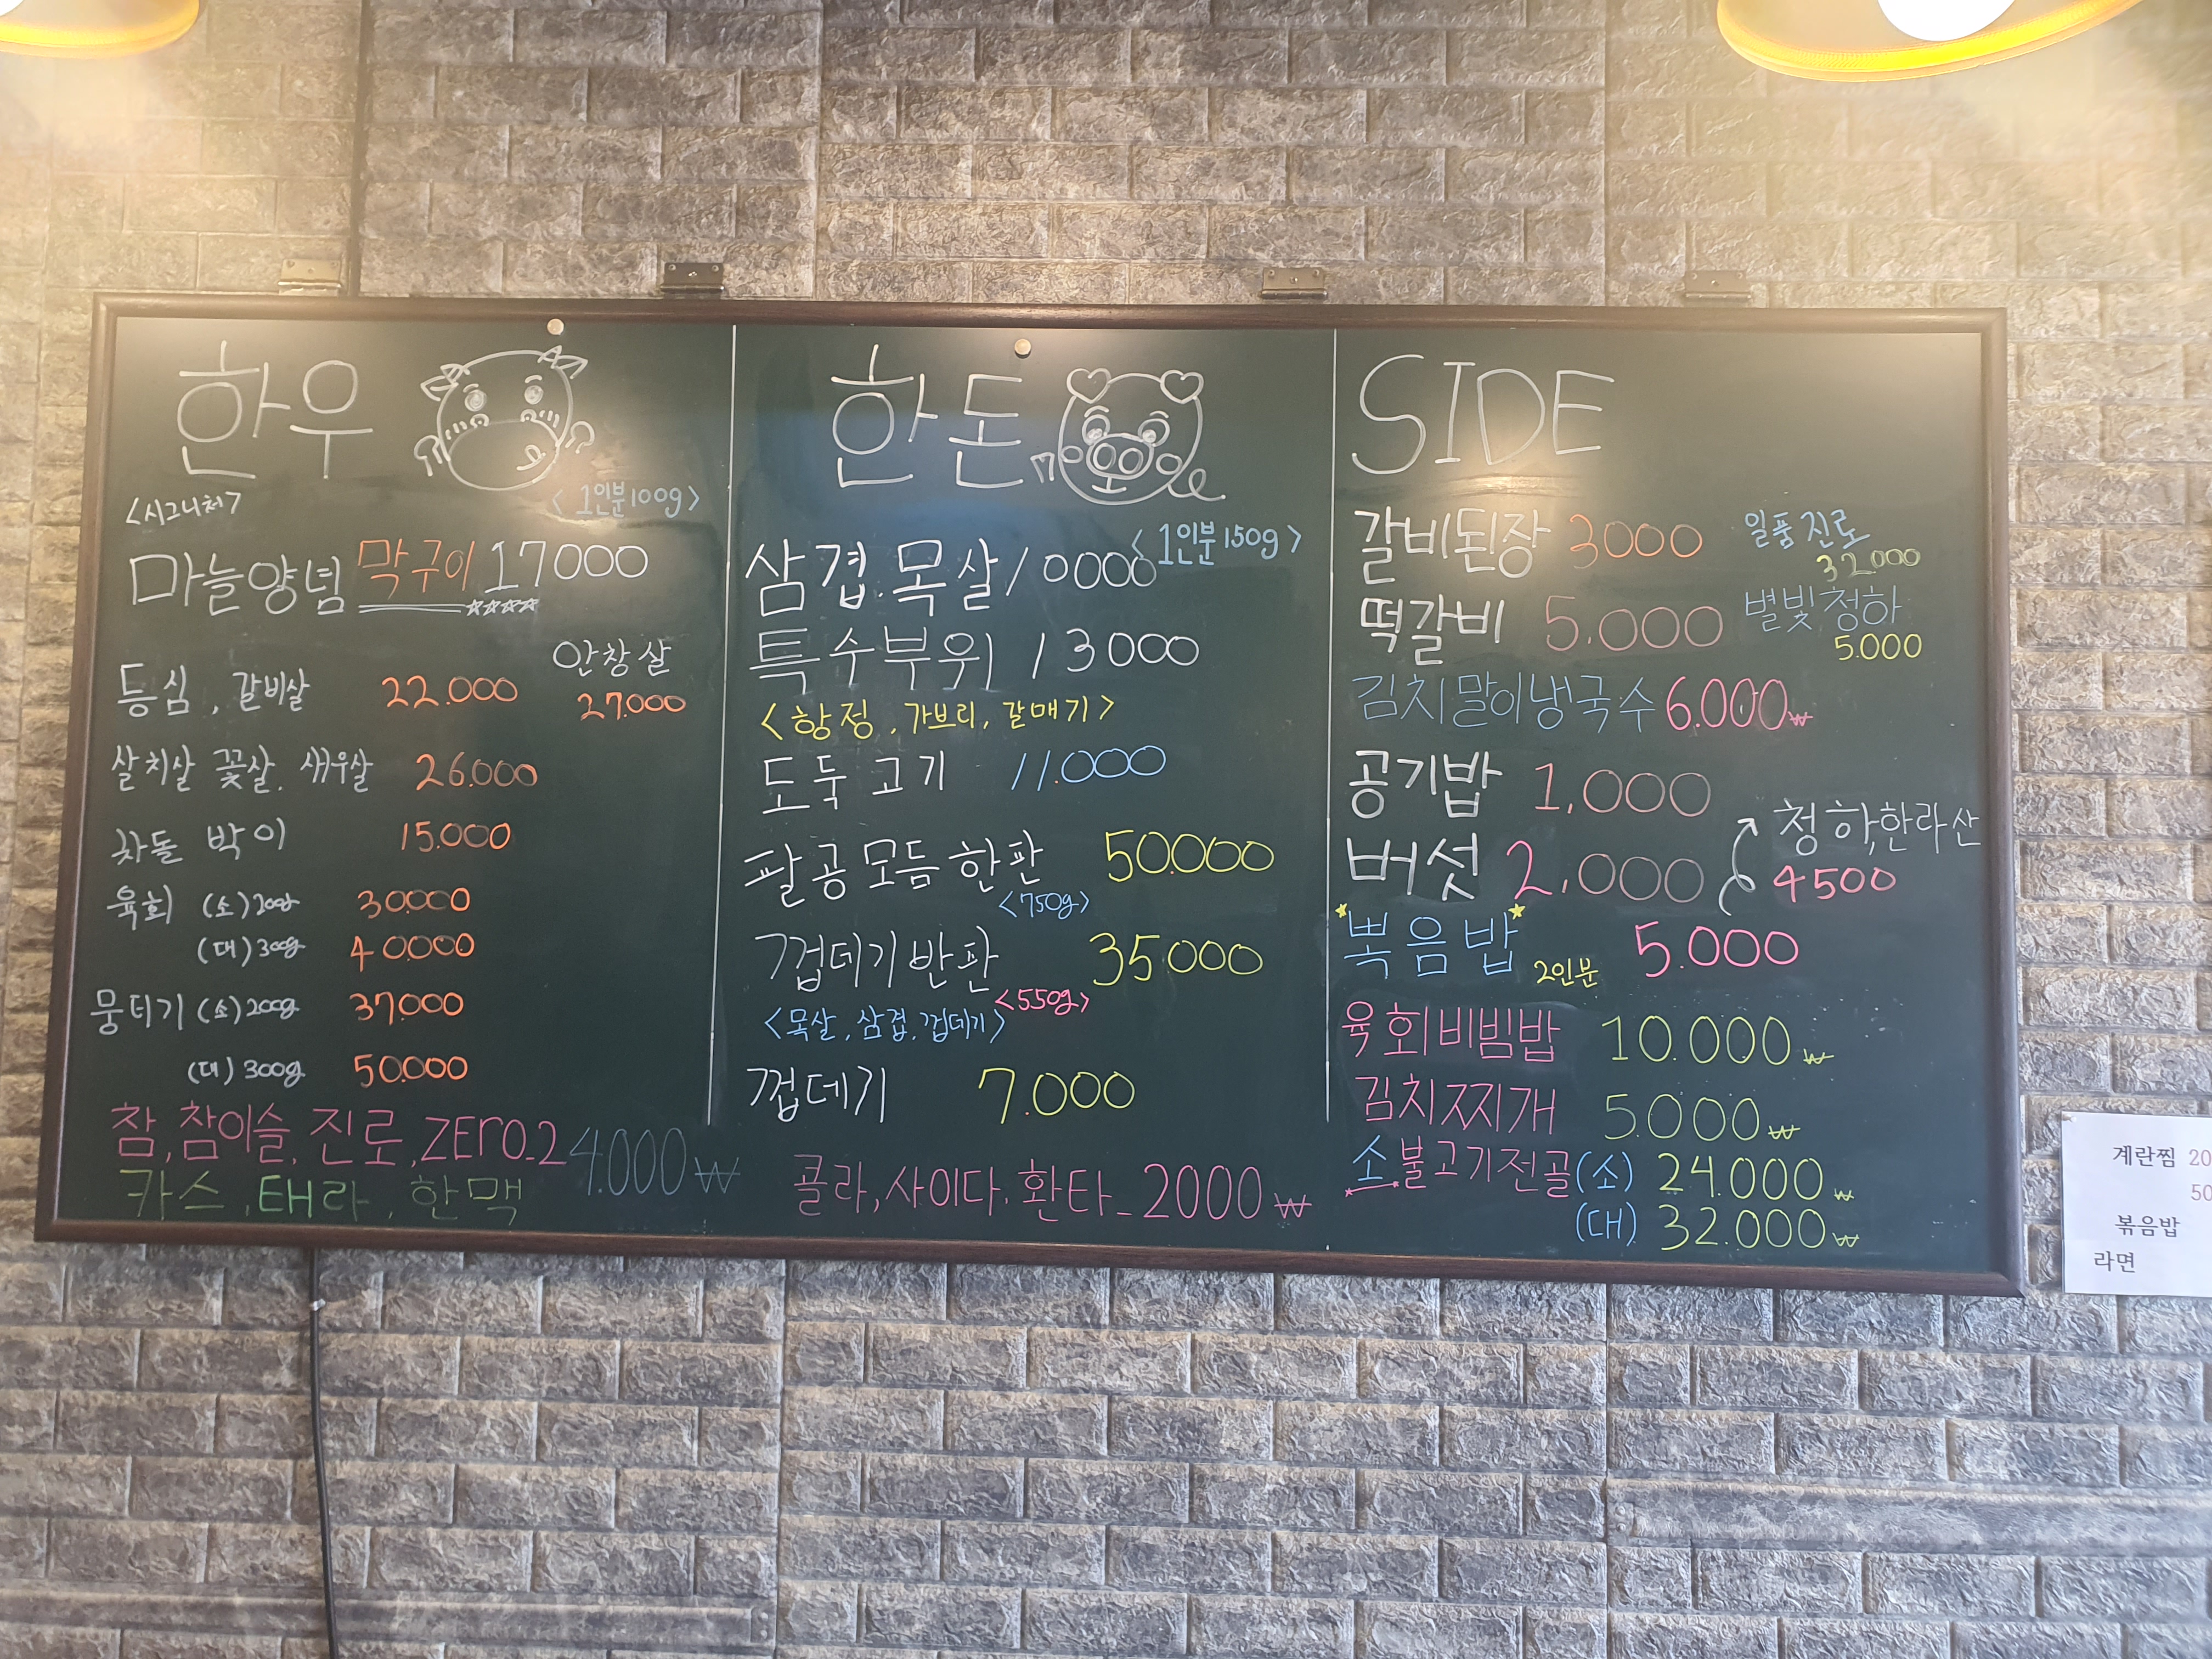 한우
<시그니처>
<1인분100g>
마늘양념 막구이 17000
안창살
27.000
등심, 갈비살 22.000
살치살 꽃살. 새우살 26.000
차돌 박이 15.000
육회 (소) 200g 30.000
(대) 300g 40.000
뭉티기 (소) 200g 37.000
(대) 300g 50.000
참, 참이슬, 진로, ZErO_2 4.000₩
카스, 테라, 한맥
한돈
<1인분150g>
삼겹.목살 10000
특수부위 13000
<항정, 가브리, 갈매기>
도둑고기 11.000
팔공모듬한판 50.000
<750g>
껍데기반판 35.000
<550g>
<목살, 삼겹, 껍데기>
껍데기 7.000
콜라, 사이다, 환타_2000₩
SIDE
갈비된장 3000
일품진로
32.000
떡갈비 5.000
별빛청하
5.000
김치말이냉국수 6.000₩
공기밥 1,000
청하,한라산
4500
버섯 2,000
뽁음밥 2인분 5.000
육회비빔밥 10.000₩
김치찌개 5.000₩
소불고기전골 (소) 24.000₩
(대) 32.000₩
계란찜 20
50
볶음밥
라면